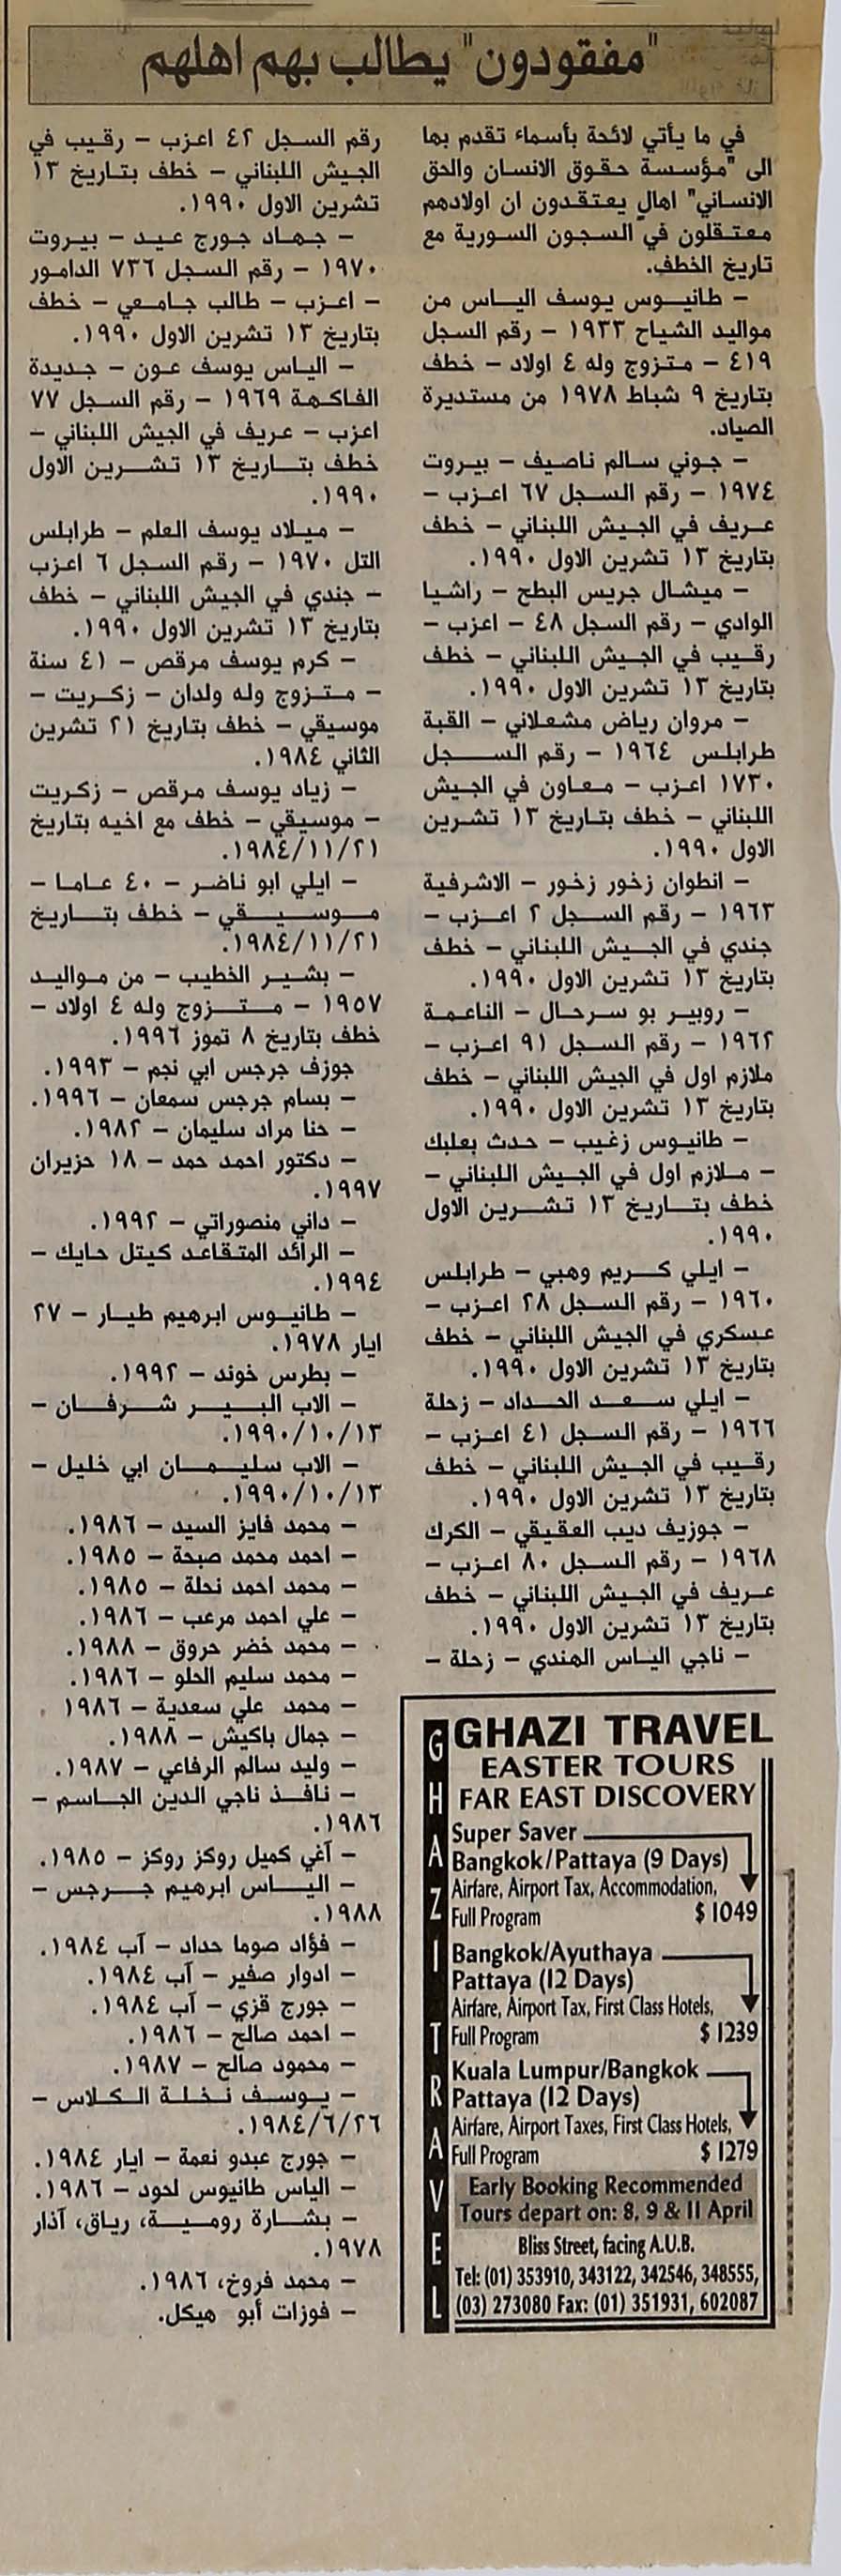 "مفقودون" يطالب بهم اهلهم
في ما يأتي لائحة بأسماء تقدم بها
الى "مؤسسة حقوق الانسان والحق
الانساني" اهالٍ يعتقدون ان اولادهم
معتقلون في السجون السورية مع
تاريخ الخطف.
– طانيوس يوسف الياس من
مواليد الشياح ١٩٣٣ – رقم السجل
٤١٩ – متزوج وله ٤ اولاد – خطف
بتاريخ ٩ شباط ١٩٧٨ من مستديرة
الصياد.
– جوني سالم ناصيف – بيروت
١٩٧٤ – رقم السجل ٦٧ اعزب –
عريف في الجيش اللبناني – خطف
بتاريخ ١٣ تشرين الاول ١٩٩٠.
– ميشال جريس البطح – راشيا
الوادي – رقم السجل ٤٨ – اعزب –
رقيب في الجيش اللبناني – خطف
بتاريخ ١٣ تشرين الاول ١٩٩٠.
– مروان رياض مشعلاني – القبة
طرابلس ١٩٦٤ – رقم السجل
١٧٣٠ اعزب – معاون في الجيش
اللبناني – خطف بتاريخ ١٣ تشرين
الاول ١٩٩٠.
– انطوان زخور زخور – الاشرفية
١٩٦٣ – رقم السجل ٢ اعزب –
جندي في الجيش اللبناني – خطف
بتاريخ ١٣ تشرين الاول ١٩٩٠.
– روبير بو سرحال – الناعمة
١٩٦٢ – رقم السجل ٩١ اعزب –
ملازم اول في الجيش اللبناني – خطف
بتاريخ ١٣ تشرين الاول ١٩٩٠.
– طانيوس زغيب – حدث بعلبك
– ملازم اول في الجيش اللبناني –
خطف بتاريخ ١٣ تشرين الاول
١٩٩٠.
– ايلي كريم وهبي – طرابلس
١٩٦٠ – رقم السجل ٢٨ اعزب –
عسكري في الجيش اللبناني – خطف
بتاريخ ١٣ تشرين الاول ١٩٩٠.
– ايلي سعد الحداد – زحلة
١٩٦٦ – رقم السجل ٤١ اعزب –
رقيب في الجيش اللبناني – خطف
بتاريخ ١٣ تشرين الاول ١٩٩٠.
– جوزيف ديب العقيقي – الكرك
١٩٦٨ – رقم السجل ٨٠ اعزب –
عريف في الجيش اللبناني – خطف
بتاريخ ١٣ تشرين الاول ١٩٩٠.
– ناجي الياس الهندي – زحلة –
رقم السجل ٤٢ اعزب – رقيب في
الجيش اللبناني – خطف بتاريخ ١٣
تشرين الاول ١٩٩٠.
– جهاد جورج عيد – بيروت
١٩٧٠ – رقم السجل ٧٣٦ الدامور
– اعزب – طالب جامعي – خطف
بتاريخ ١٣ تشرين الاول ١٩٩٠.
– الياس يوسف عون – جديدة
الفاكهة ١٩٦٩ – رقم السجل ٧٧
اعزب – عريف في الجيش اللبناني –
خطف بتاريخ ١٣ تشرين الاول
١٩٩٠.
– ميلاد يوسف العلم – طرابلس
التل ١٩٧٠ – رقم السجل ٦ اعزب
– جندي في الجيش اللبناني – خطف
بتاريخ ١٣ تشرين الاول ١٩٩٠.
– كرم يوسف مرقص – ٤١ سنة
– متزوج وله ولدان – زكريت –
موسيقي – خطف بتاريخ ٢١ تشرين
الثاني ١٩٨٤.
– زياد يوسف مرقص – زكريت
– موسيقي – خطف مع اخيه بتاريخ
١٩٨٤/١١/٢١.
– ايلي ابو ناضر – ٤٠ عاما –
موسيقي – خطف بتاريخ
١٩٨٤/١١/٢١.
– بشير الخطيب – من مواليد
١٩٥٧ – متزوج وله ٤ اولاد –
خطف بتاريخ ٨ تموز ١٩٩٦.
جوزف جرجس ابي نجم – ١٩٩٣.
– بسام جرجس سمعان – ١٩٩٦.
– حنا مراد سليمان – ١٩٨٢.
– دكتور احمد حمد – ١٨ حزيران
١٩٩٧.
– داني منصوراتي – ١٩٩٢.
– الرائد المتقاعد كيتل حايك –
١٩٩٤.
– طانيوس ابرهيم طيار – ٢٧
ايار ١٩٧٨.
– بطرس خوند – ١٩٩٢.
– الاب البير شرفان –
١٩٩٠/١٠/١٣.
– الاب سليمان ابي خليل –
١٩٩٠/١٠/١٣.
– محمد فايز السيد – ١٩٨٦.
– احمد محمد صبحة – ١٩٨٥.
– محمد احمد نحلة – ١٩٨٥.
– علي احمد مرعب – ١٩٨٦.
– محمد خضر حروق – ١٩٨٨.
– محمد سليم الحلو – ١٩٨٦.
– محمد علي سعدية – ١٩٨٦.
– جمال باكيش – ١٩٨٨.
– وليد سالم الرفاعي – ١٩٨٧.
– نافذ ناجي الدين الجاسم –
١٩٨٦.
– آغي كميل روكز روكز – ١٩٨٥.
– الياس ابرهيم جرجس –
١٩٨٨.
– فؤاد صوما حداد – آب ١٩٨٤.
– ادوار صفير – آب ١٩٨٤.
– جورج قزي – آب ١٩٨٤.
– احمد صالح – ١٩٨٦.
– محمود صالح – ١٩٨٧.
– يوسف نخلة الكلاس –
١٩٨٤/٦/٢٦.
– جورج عبدو نعمة – ايار ١٩٨٤.
– الياس طانيوس لحود – ١٩٨٦.
– بشارة رومية، رياق، آذار
١٩٧٨.
– محمد فروخ، ١٩٨٦.
– فوزات أبو هيكل.
GHAZI TRAVEL
GHAZI TRAVEL
EASTER TOURS
FAR EAST DISCOVERY
Super Saver
Bangkok/Pattaya (9 Days)
Airfare, Airport Tax, Accommodation,
Full Program $ 1049
Bangkok/Ayuthaya
Pattaya (12 Days)
Airfare, Airport Tax, First Class Hotels,
Full Program $ 1239
Kuala Lumpur/Bangkok
Pattaya (12 Days)
Airfare, Airport Taxes, First Class Hotels,
Full Program $ 1279
Early Booking Recommended
Tours depart on: 8, 9 & 11 April
Bliss Street, facing A.U.B.
Tel: (01) 353910, 343122, 342546, 348555,
(03) 273080 Fax: (01) 351931, 602087